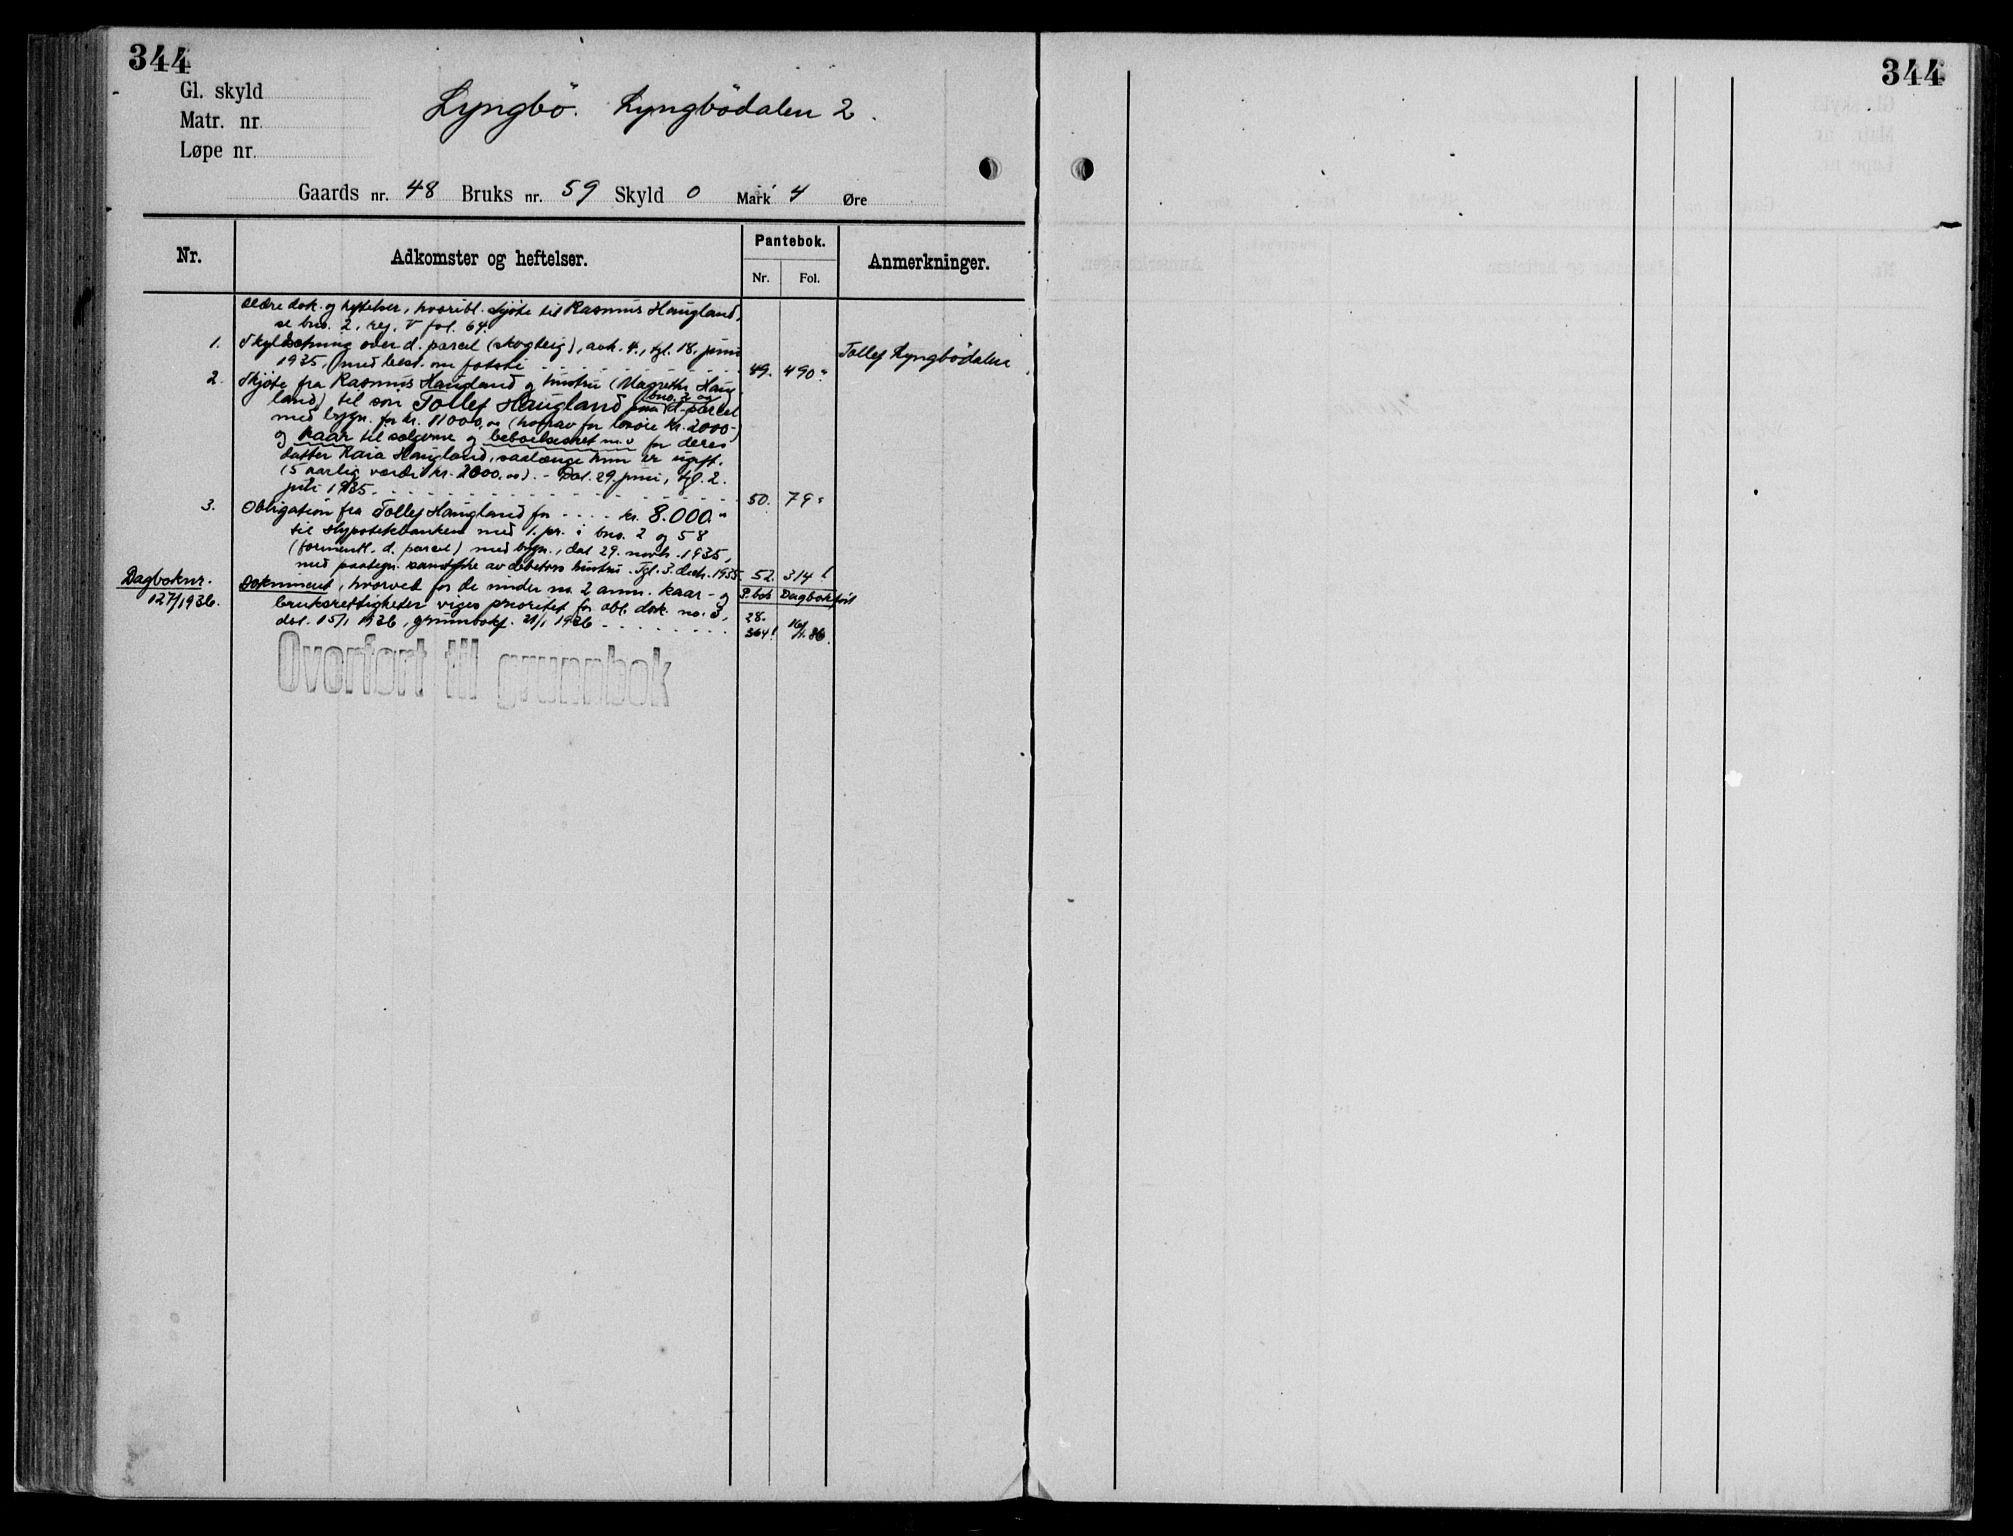 344
344
Gl. skyld
Matr. nr.
Løpe nr.
Lyngbö. Lyngbödalen 2.
Gaards nr. 48 Bruks nr. 59 Skyld 0 Mark 4 Øre
Nr.
Adkomster og heftelser.
Pantebok.
Nr. Fol.
Anmerkninger.
Ældre dok. og heftelser, hvoribl. skjöte til Rasmus Haugland,
se bno. 2, reg. V fol. 64.
1. Skyldsetning over d. parcel (skogteig), avh. 4., tgl. 18. juni
1935, med best. om 49. 490 Tollef Lyngbödalen
2. Skjöte fra Rasmus Haugland og hustru (Magrethe Haug-
land) til sön Tollef Haugland paa bno. 2 og d. parcel
med bygn. for kr. 11000,00 (hvorav for lösöre kr. 2000-)
og kaar til sælgerne og beboelsesret m.v. for deres
datter Kaia Haugland, saalænge hun er ugift.
(5 aarlig værdi kr. 2000,00). - Dat. 29. juni, tgl. 2.
juli 1935. 50. 79
3. Obligation fra Tollef Haugland for kr. 8.000.
til Hypotekbanken med 1. pr. i bno. 2 og 58
(formentl. d. parcel) med bygn., dat 29. novb. 1935,
med paategn. samtykke av debitors hustru. Tgl. 3. decb. 1935. 52. 314
Dagboknr.
127/1936. Dokument, hvorved for de under no. 2 anm. kaar- og P.bok Dagbokført
bruksrettigheter viges prioritet for obl. dok. no. 3,
dat. 15/1 1936, grunnbokf. 21/1 1936 28. 364 16/1.36.
Overført til grunnbok